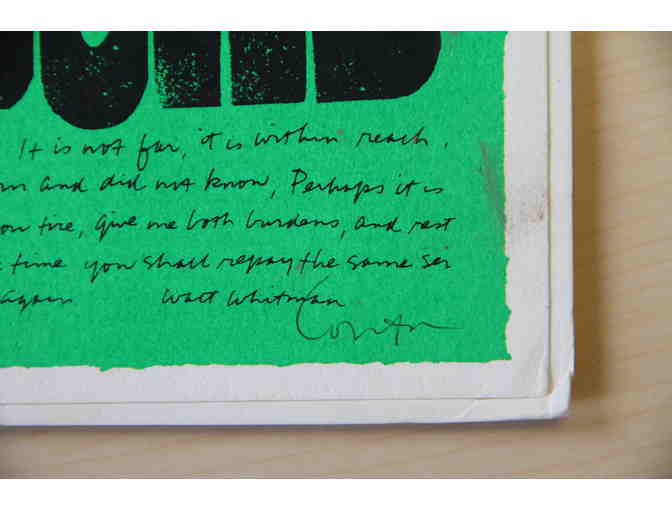 It is not far, it is within reach.
rn and did not know, Perhaps it is
ou tire, give me both burdens, and rest
time you shall repay the same ser
again Walt Whitman